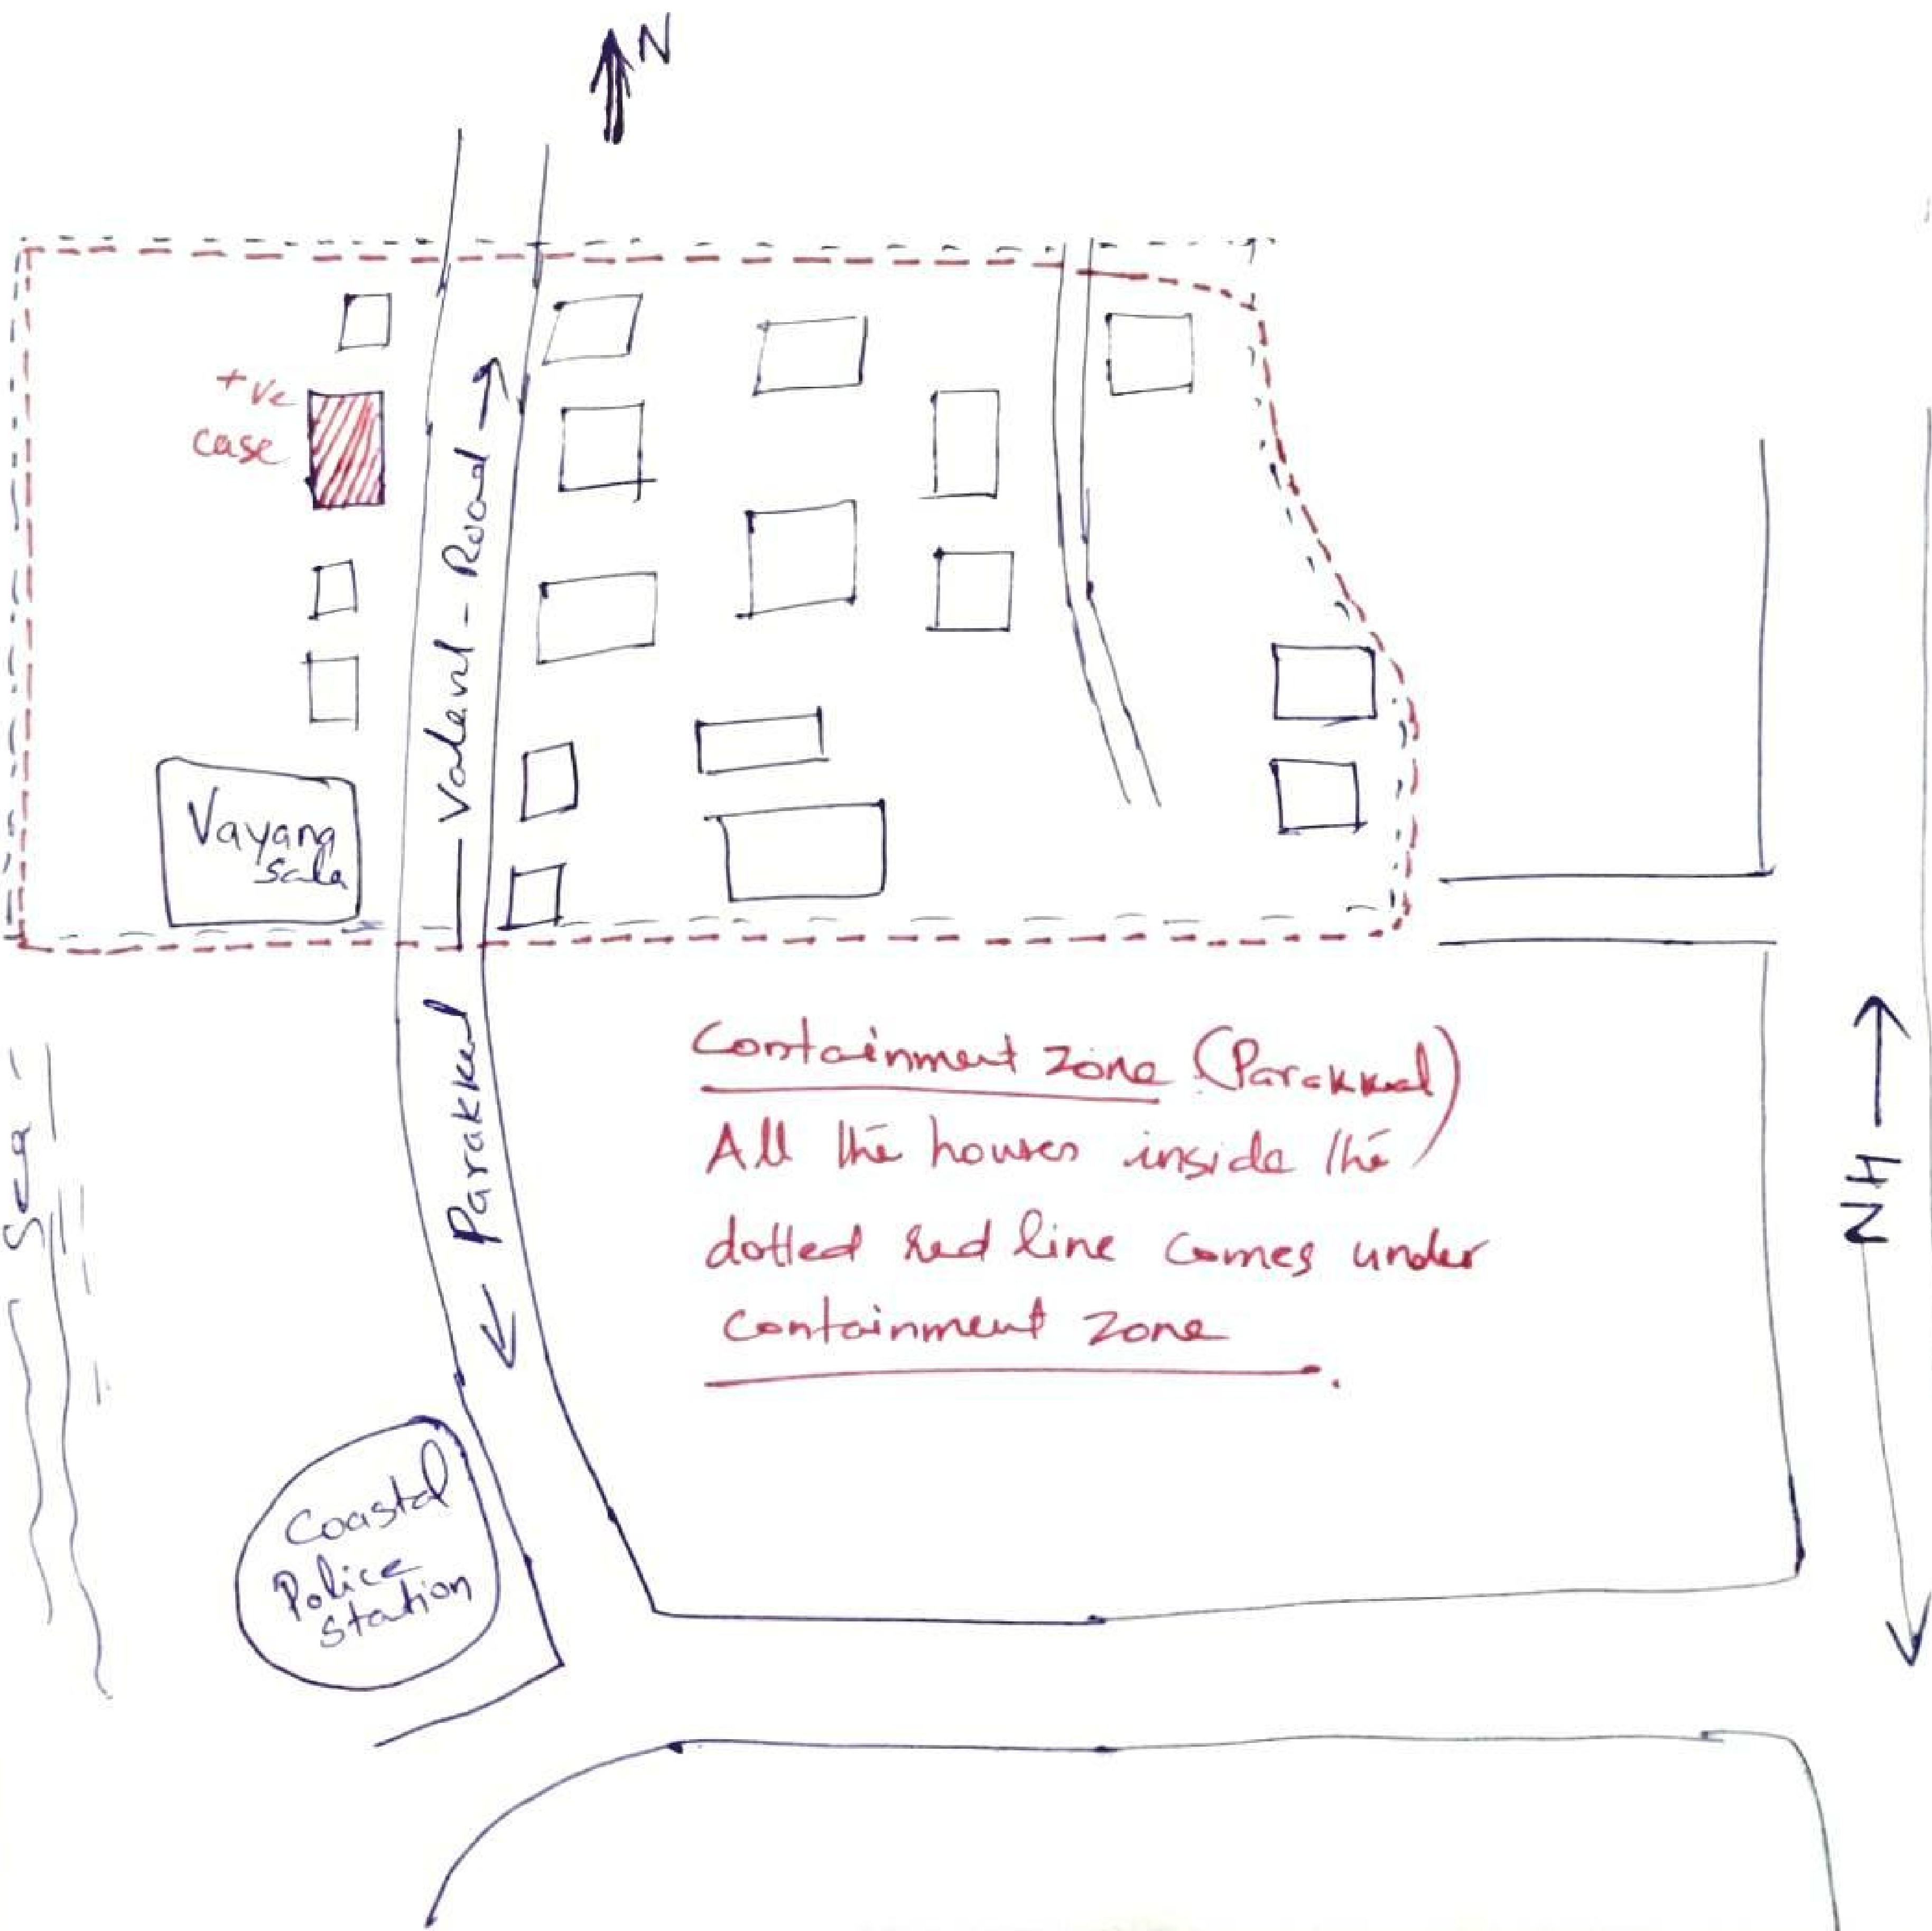 N
+ve
case
Vayang
Sala
Road
Parakkal
Containment zone (Parakkal)
All the houses inside the
dotted red line comes under
Containment zone
Sea
NH
Coastal
Police
Station